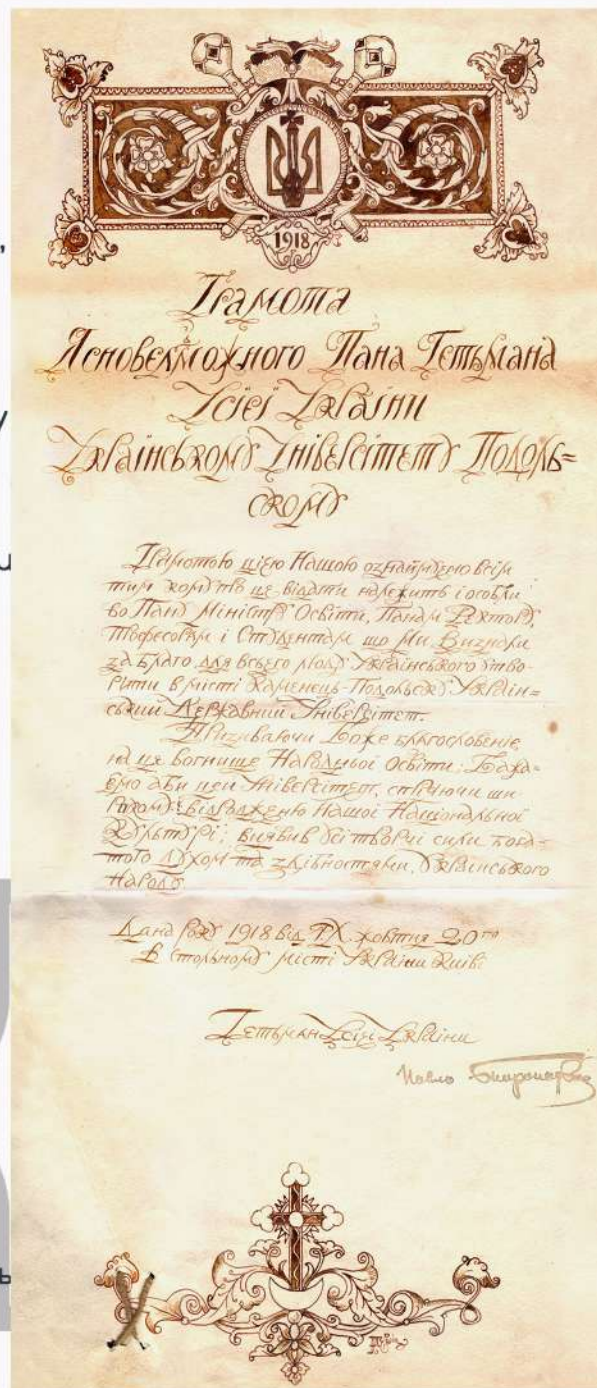 1918
Грамота
Ясновельможного Пана Гетьмана
Усієї України
Українському Університету Подоль=
скому
Грамотою цією Нашою ознаймуємо всім
тим кому то це відати належить і особли
во Пану Міністру Освіти, Панам Ректору,
Професорам і Студентам що Ми Визнали
за благо для всього люду Українського утво-
рити в місті Каменець-Подольську Україн=
ський Державний Університет.
Призиваючи Боже благословеніе
на це вогнище Народньої Освіти; Бажа=
ємо аби цей Університет, сприяючи ши
рокому відродженню Нашої Національної
Культурі; виявив усі творчі сили бога=
того духом та здібностями, Українського
Народу
Дана року 1918 від Р.Х. жовтня 20го
В стольному місті України Київі
Гетьман Усієї України
Павло Скоропадський